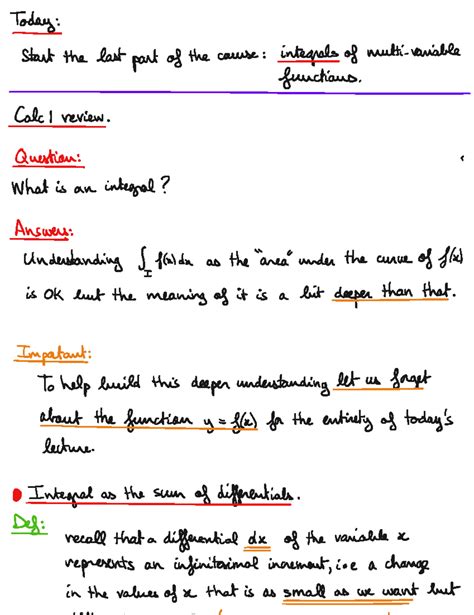 Today:
Start the last part of the course: integrals of multi-variable
functions.
Calc 1 review.
Question:
What is an integral?
Answer:
Understanding ∫_I f(x)dx as the "area" under the curve of f(x)
is OK but the meaning of it is a bit deeper than that.
Important:
To help build this deeper understanding let us forget
about the function y = f(x) for the entirety of today's
lecture.
• Integral as the sum of differentials.
Def:
recall that a differential dx of the variable x
represents an infinitesimal increment, i.e a change
in the values of x that is as small as we want but